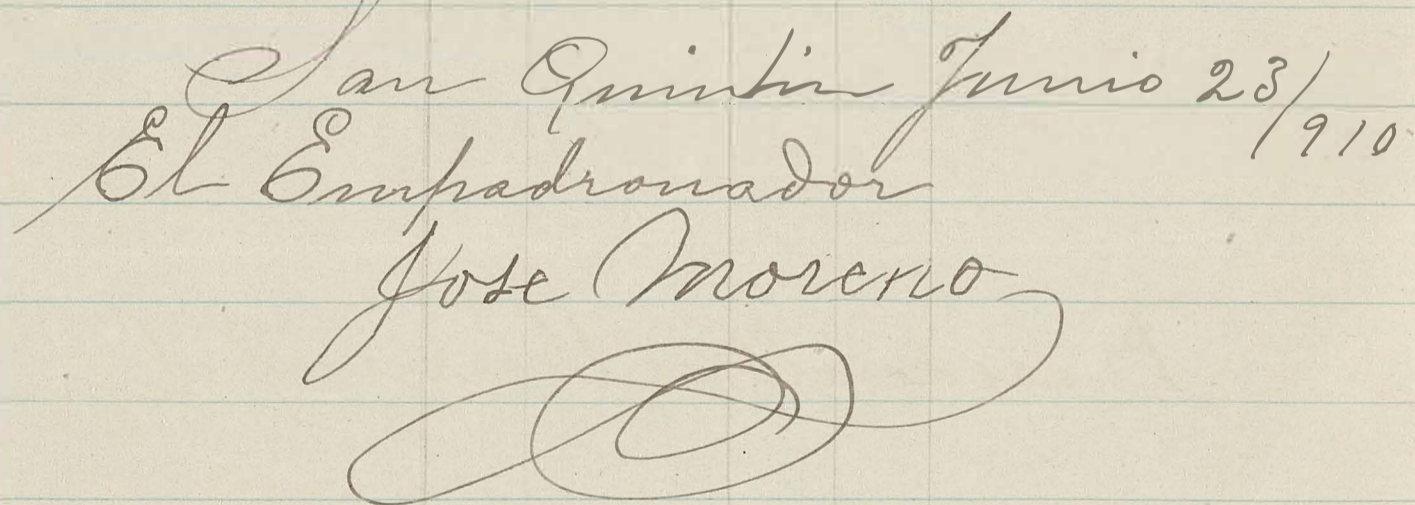 San Quintin Junio 23/910
El Empadronador
Jose Moreno